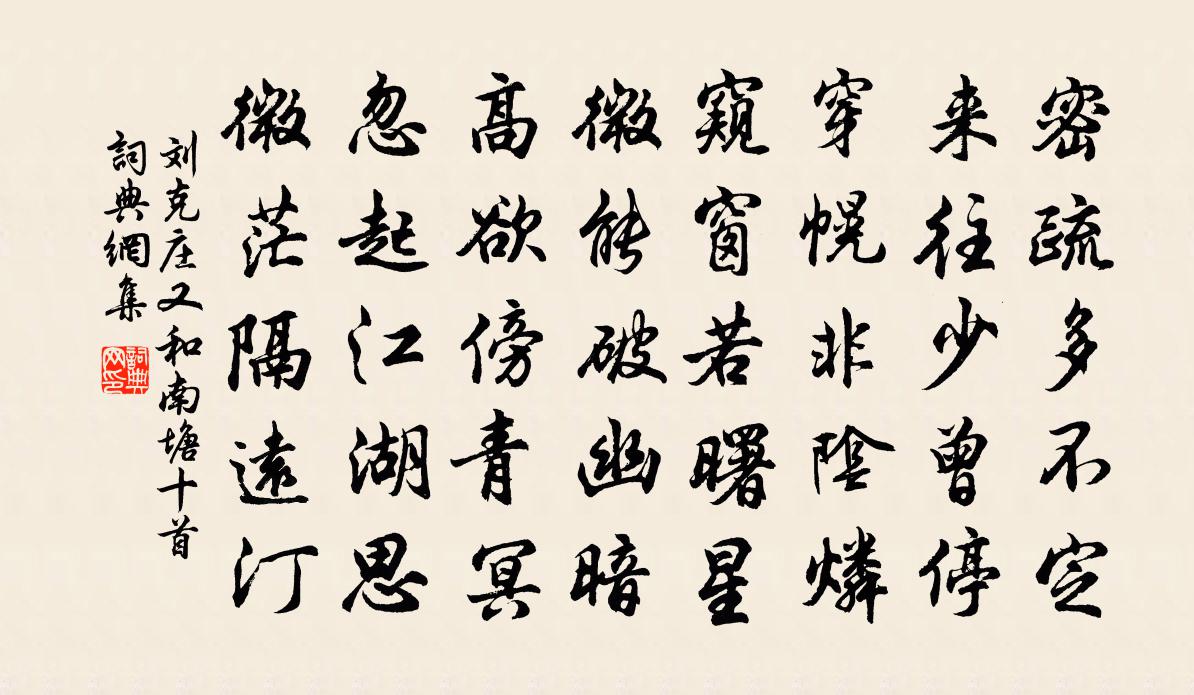 密疏多不定
来往少曾停
穿幌非陰燐
窺窗若曙星
微能破幽暗
高欲傍青冥
忽起江湖思
微茫隔遠汀
刘克庄又和南塘十首
詞典網集
詞典网印